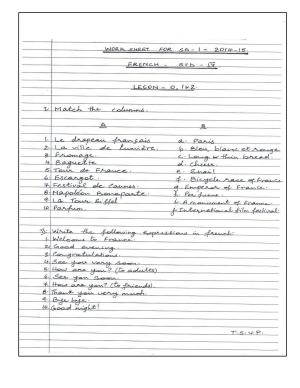 WORK SHEET FOR SA - I - 2014-15
FRENCH - STD - IV
LESSON - 0, 1 & 2
I. Match the columns.
A B
1. Le drapeau français a. Paris
2. La ville de lumière. b. Bleu, blanc et rouge
3. Fromage. c. Long & thin bread
4. Baguette d. Cheese.
5. Tour de France. e. Snail
6. Escargot. f. Bicycle race of France
7. Festival de Cannes. g. Emperor of France.
8. Napoléon Bonaparte. h. Perfume.
9. La Tour Eiffel i. A monument of France
10. Parfum. j. International film festival
II. Write the following expressions in french.
1. Welcome to France.
2. Good evening.
3. Congratulations.
4. See you very soon.
5. How are you? (to adults)
6. See you soon.
7. How are you? (to friends).
8. Thank you very much.
9. Bye bye.
10. Good night!